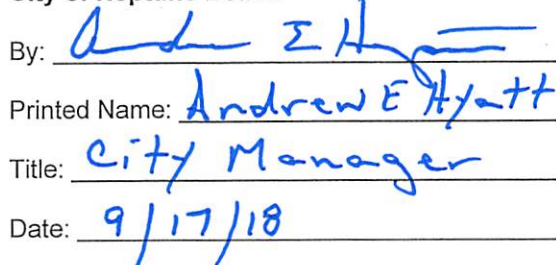 By: Andrew E Hyatt
Printed Name: Andrew E Hyatt
Title: City Manager
Date: 9/17/18